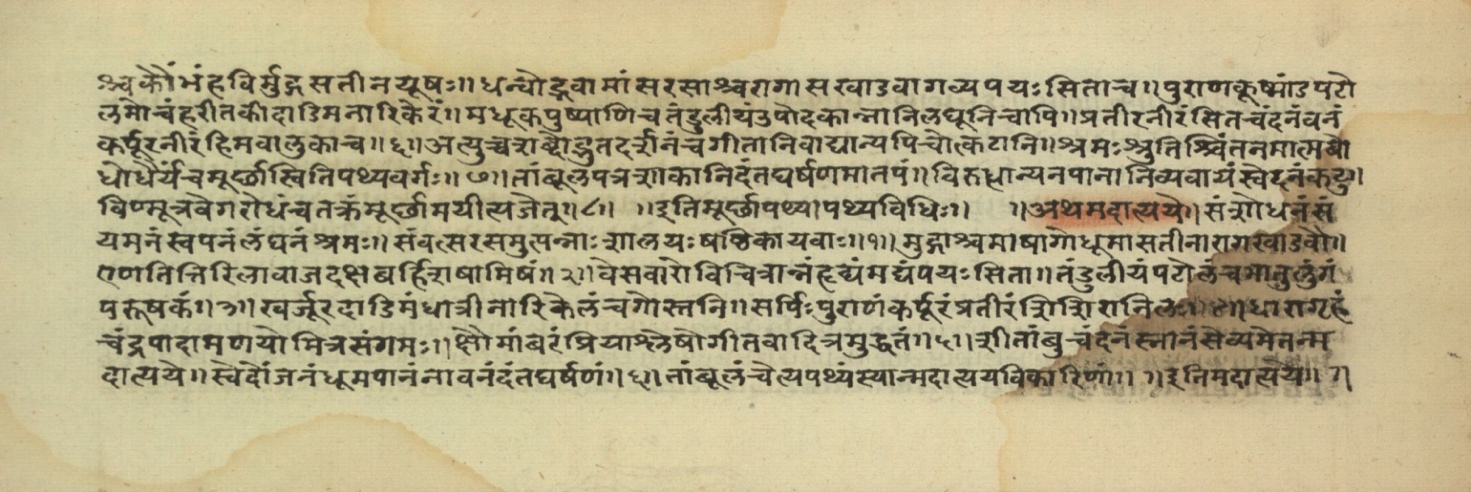 श्च कौंभंहविर्मुद्गसतीनयूषः॥ धन्वोद्भवामांसरसाश्चरागासखाडवागव्यपयःसिताच॥ पुराणकूष्मांडपटो
लमोचंहरीतकीदाडिमनारिकेरं॥ मधूकपुष्पाणिचतंडुलीयंउपोदकान्नानिलघूनिचापि॥ प्रतीरनीरंसितचंदनंवनं
कर्पूरनीरंहिमवालुकाच॥६॥ अत्युच्चशब्दोद्भुतदर्शनंचगीतानिवाद्यान्यपिचोत्कटानि॥ श्रमःश्रुतिश्चिंतनमात्मबो
धोधैर्यंचमूर्छास्वितिपथ्यवर्गः॥७॥ तांबूलपत्रशाकानिदंतघर्षणमातपं॥ विरुद्धान्यनपानानिव्यवायंस्वेदनंकटु॥
विण्मूत्रवेगरोधंचतक्रंमूर्छामयीत्यजेत्॥८॥ ॥इतिमूर्छापथ्यापथ्यविधिः॥ ॥अथमदात्यये॥ संशोधनंसं
यमनंस्वपनंलंघनंश्रमः॥ संवत्सरसमुत्पन्नाःशालयःषष्ठिकायवाः॥१॥ मुद्गाश्चमाषागोधूमासतीनारागखाडवौ॥
एणतित्तिरिलावाजदक्षबर्हिशषामिषं॥२॥ वेसवारोविचित्रान्नंहृद्यंमद्यंपयःसिता॥ तंडुलीयंपटोलंचमातुलुंगं
परूषकं॥३॥ खर्जूरदाडिमंधात्रीनारिकेलंचगोस्तनि॥ सर्पिःपुराणंकर्पूरंप्रतीरंशिशिरानिलः॥४॥ धारागृहं
चंद्रपादामणयोमित्रसंगमः॥ क्षौमांबरंप्रियाश्लेषोगीतवादित्रमुद्धतं॥५॥ शीतांबुचंदनंस्नानंसेव्यमेतन्म
दात्यये॥ स्वेदोंजनंधूमपानंनावनंदंतघर्षणं॥६॥ तांबूलंचेत्यपथ्यंस्यान्मदात्ययविकारिणां॥ ॥इतिमदात्यये॥